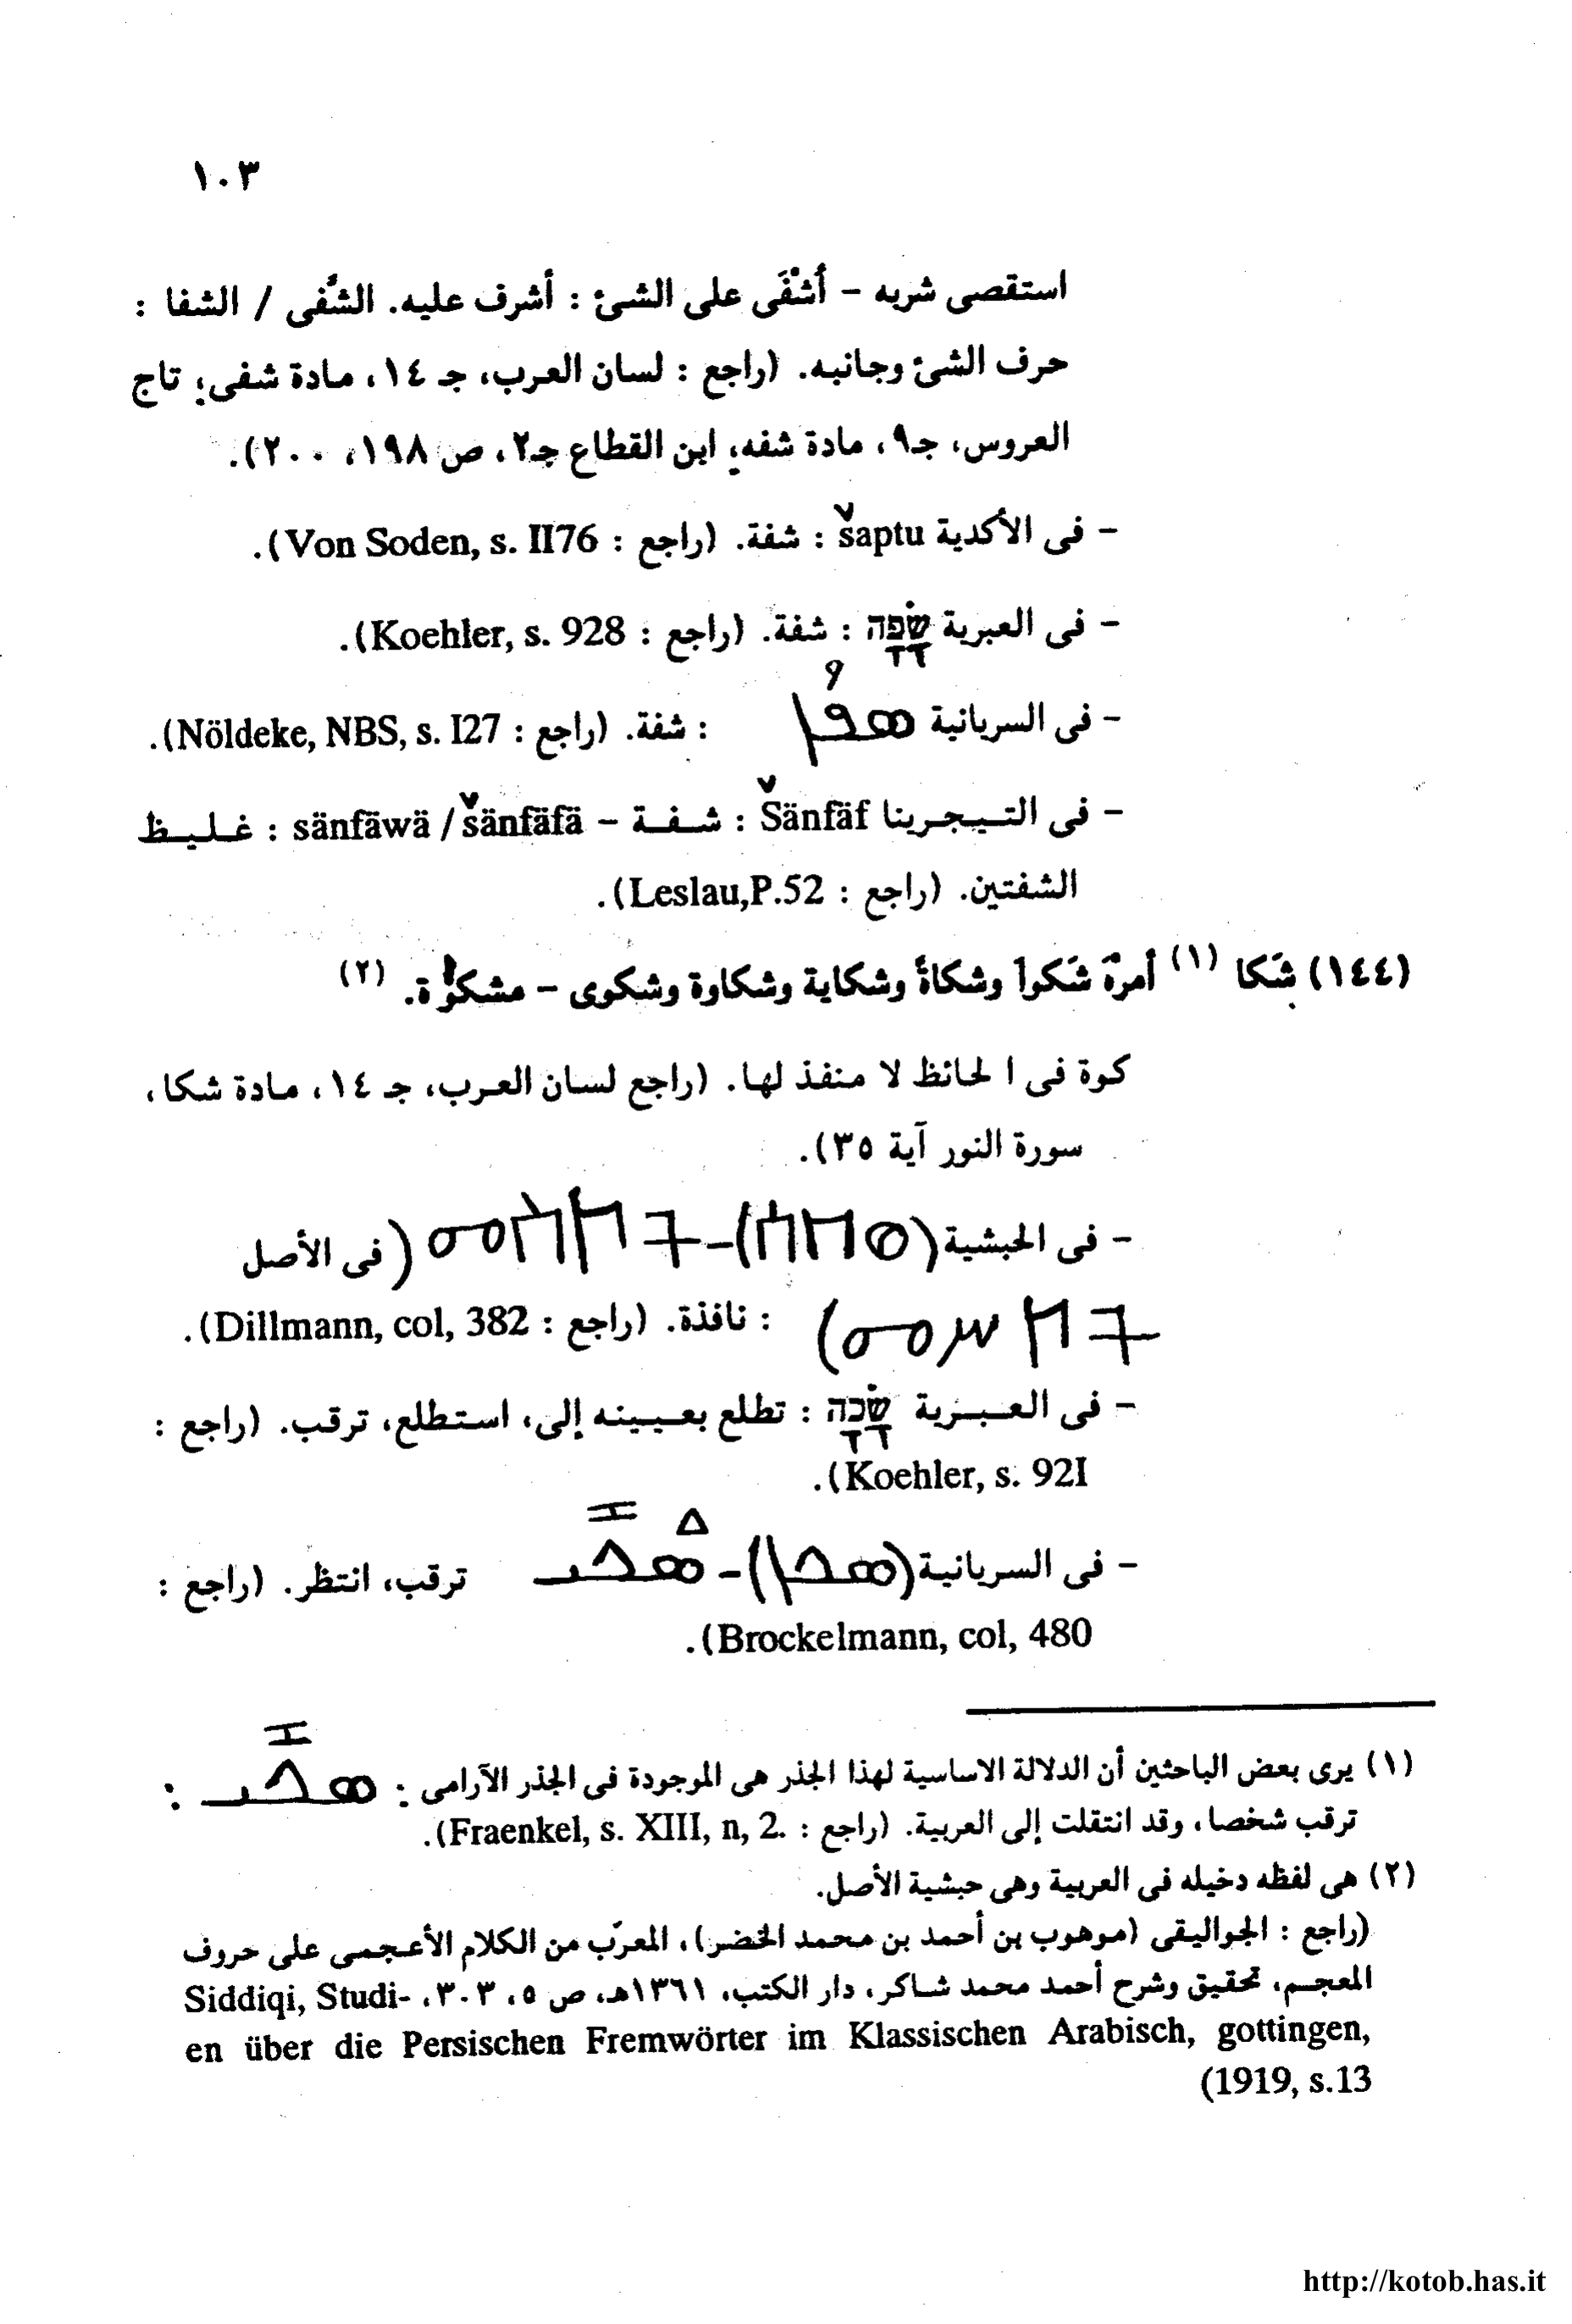 ١٠٣
استقصى شربه – أَشْفَى على الشئ : أشرف عليه. الشَّفى / الشفا :
حرف الشئ وجانبه. (راجع : لسان العرب، جـ ١٤، مادة شفى؛ تاج
العروس، جـ٩، مادة شفه؛ ابن القطاع جـ٢، ص ١٩٨، ٢٠٠).
– فى الأكدية šaptu : شفة. (راجع : Von Soden, s. II76).
– فى العبرية שָׂפָה : شفة. (راجع : Koehler, s. 928).
– فى السريانية : شفة. (راجع : Nöldeke, NBS, s. I27).
– فى التيجرينا Šänfäf : شفة – sänfäwä / šänfäfä : غليظ
الشفتين. (راجع : Leslau,P.52).
(١٤٤) شَكا (١) أمرهٌ شَكواً وشكاةً وشكاية وشكاوة وشكوى – مشكوٰة. (٢)
كوة فى ا لحائظ لا منفذ لها. (راجع لسان العرب، جـ ١٤، مادة شكا،
سورة النور آية ٣٥).
– فى الحبشية (فى الأصل
: نافذة. (راجع : Dillmann, col, 382).
– فى العبرية שָׂכָה : تطلع بعيينه إلى، استطلع، ترقب. (راجع :
Koehler, s. 92I).
– فى السريانية (ܣܟܐ) – ترقب، انتظر. (راجع :
Brockelmann, col, 480).
(١) يرى بعض الباحثين أن الدلالة الاساسية لهذا الجذر هى الموجودة فى الجذر الآرامى : ܣܟܝ :
ترقب شخصا، وقد انتقلت إلى العربية. (راجع : Fraenkel, s. XIII, n, 2.).
(٢) هى لفظه دخيله فى العربية وهى حبشية الأصل.
(راجع : الجواليقى (موهوب بن أحمد بن محمد الخضر)، المعرّب من الكلام الأعجمى على حروف
المعجم، تحقيق وشرح أحمد محمد شاكر، دار الكتب، ١٣٦١هـ، ص ٥، ٣٠٣، Siddiqi, Studi-
en über die Persischen Fremwörter im Klassischen Arabisch, gottingen,
(1919, s.13
http://kotob.has.it